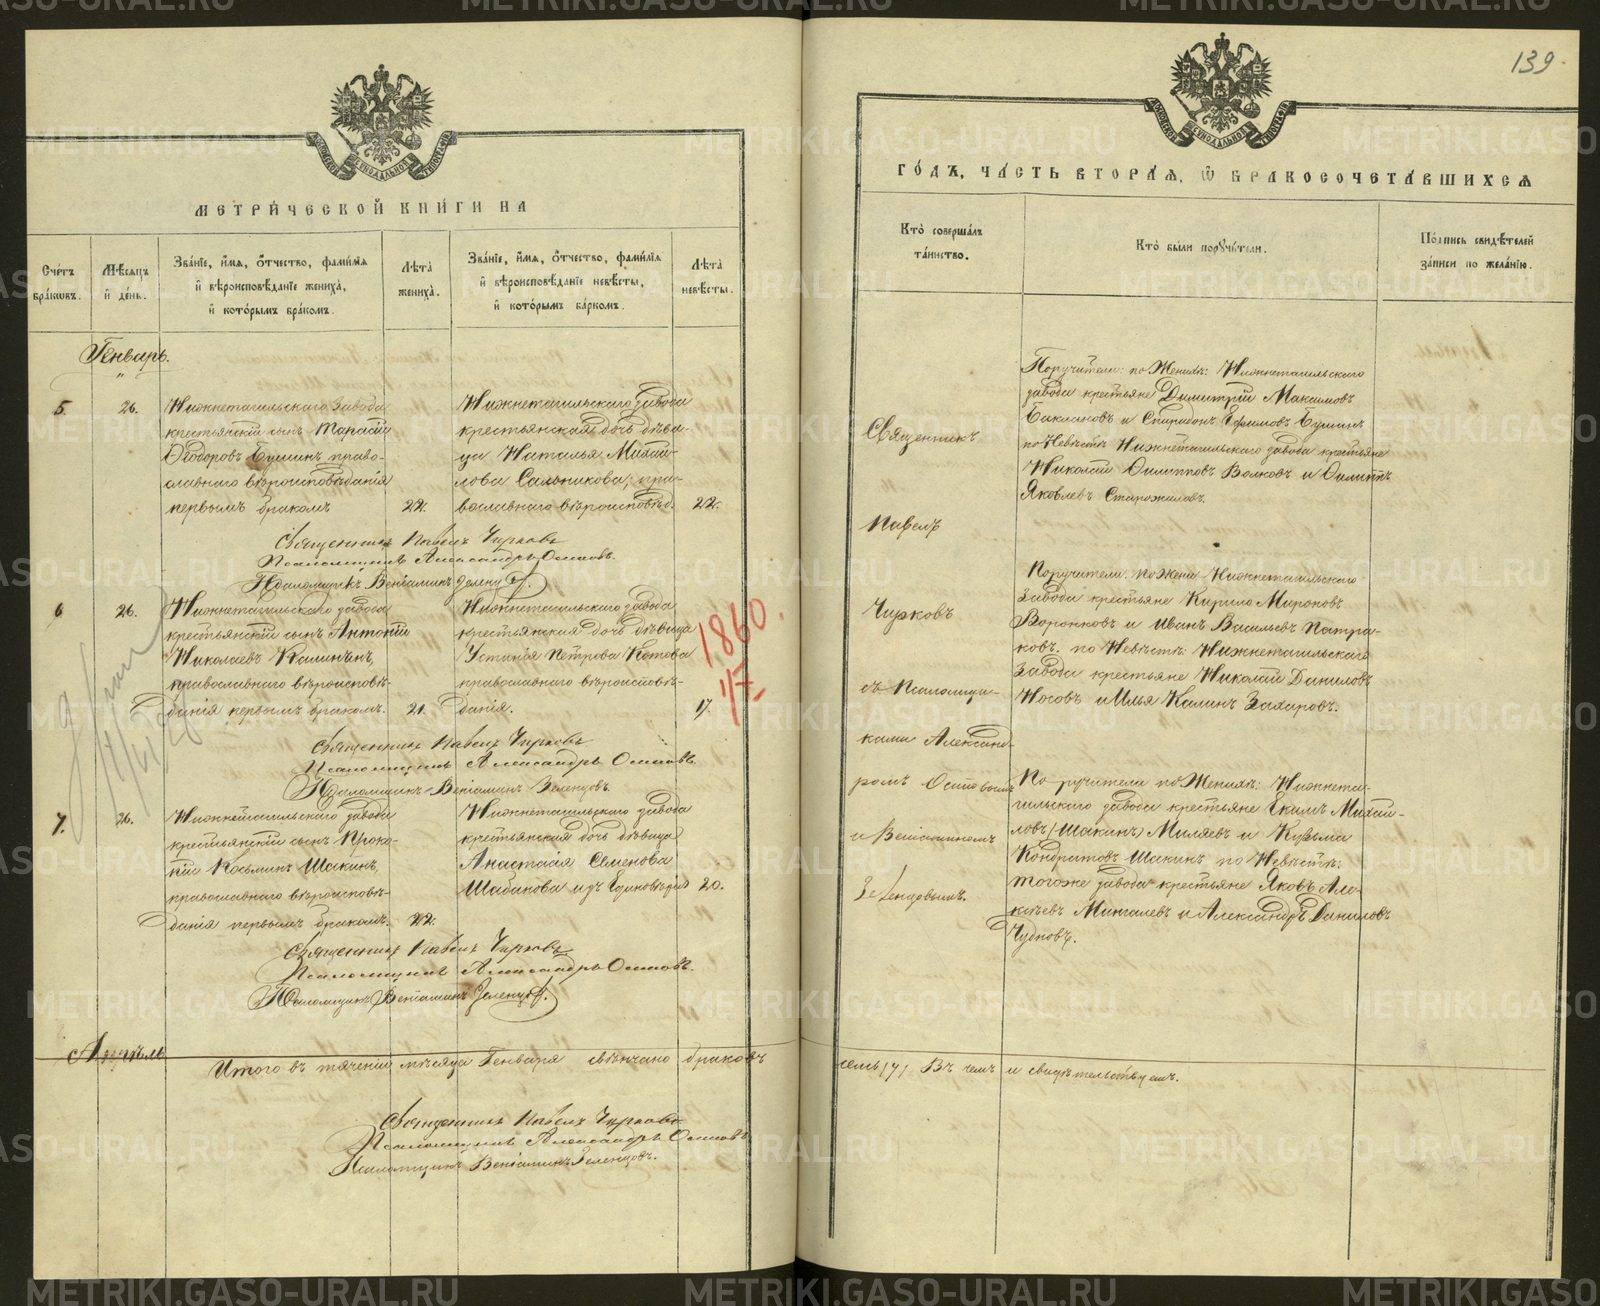 МЕТРИ́ЧЕСКОЙ КНИ́ГИ НА
Сче́тъ бра́ковъ.
Мѣ́сяцъ и́ де́нь.
Зва́нїе, и́мя, о́тчество, фами́лїя
и́ вѣроисповѣ́данїе жениха̀,
и́ кото́рымъ бра́комъ.
Лѣ́та жениха̀.
Зва́нїе, и́мя, о́тчество, фами́лїя
и́ вѣроисповѣ́данїе невѣ́сты,
и́ кото́рымъ ба́ркомъ.
Лѣ́та невѣ́сты.
Генварь.
5.
26.
Нижнетагильскаго завода
крестьянскій сынъ Тарасій
Ѳеодоровъ Бушинъ право-
славнаго вѣроисповѣданія
первымъ бракомъ
22.
Нижнетагильскаго завода
крестьянская дочь дѣви-
ца Наталья Михаи-
лова Сальникова, пра-
вославнаго вѣроисповѣд.
22.
Священникъ Павелъ Чирковъ
Псаломщикъ Александръ Осиповъ.
Псаломщикъ Веніаминъ Зеленцовъ.
6
26.
Нижнетагильскаго завода
крестьянскій сынъ Антоній
Николаевъ Калининъ,
православнаго вѣроисповѣ-
данія первымъ бракомъ.
21.
Нижнетагильскаго завода
крестьянская дочь дѣвица
Устинія Петрова Котова
православнаго вѣроисповѣ-
данія.
17.
1860.
Священникъ Павелъ Чирковъ
Псаломщикъ Александръ Осиповъ
Псаломщикъ Веніаминъ Зеленцовъ.
7.
26.
Нижнетагильскаго завода
крестьянскій сынъ Проко-
пій Косьминъ Шакинъ,
православнаго вѣроисповѣ-
данія первымъ бракомъ.
22.
Нижнетагильскаго завода
крестьянская дочь дѣвица
Анастасія Семенова
Шабакова изъ Единовѣрія
20.
Священникъ Павелъ Чирковъ
Псаломщикъ Александръ Осиповъ.
Псаломщикъ Веніаминъ Зеленцовъ.
Апрѣль
Итого въ теченіи мѣсяца Генваря свѣнчано браковъ
Священникъ Павелъ Чирковъ
Псаломщикъ Александръ Осиповъ
Псаломщикъ Веніаминъ Зеленцовъ.
139
ГО́ДЪ, ЧА́СТЬ ВТОРА́Я, Ѡ БРАКОСОЧЕТА́ВШИХСЯ
Кто̀ соверша́лъ та́инство.
Кто̀ бы́ли поручи́тели.
По́дпись свидѣ́телей за́писи по жела́нію.
Священникъ
Павелъ
Чирковъ
съ Псаломщи-
ками Александ-
ромъ Осиповымъ
и Веніаминомъ
Зеленцовымъ.
Поручители: по Женихѣ: Нижнетагильскаго
завода крестьяне Димитрій Максимовъ
Баклановъ и Спиридонъ Ефимовъ Бушинъ
по Невѣстѣ Нижнетагильскаго завода крестьяне
Николай Филипповъ Волковъ и Филиппъ
Яковлевъ Старожиловъ
Поручители: по Жени Нижнетагильскаго
завода крестьяне Кирило Мироновъ
Воронковъ и Иванъ Васильевъ Патра-
ковъ. по Невѣстѣ: Нижнетагильскаго
завода крестьяне Николай Даниловъ
Носовъ и Илья Калинъ Захаровъ.
Поручители по Женихѣ: Нижнета-
гильскаго завода крестьяне Екимъ Михаи-
ловъ (Шакинъ) Миляевъ и Кузьма
Кондратовъ Шакинъ по Невѣстѣ:
тогоже завода крестьяне Яковъ Але-
ксѣевъ Мингалевъ и Александръ Даниловъ
Чудновъ.
семь (7) Въ чемъ и свидѣтельствуемъ.